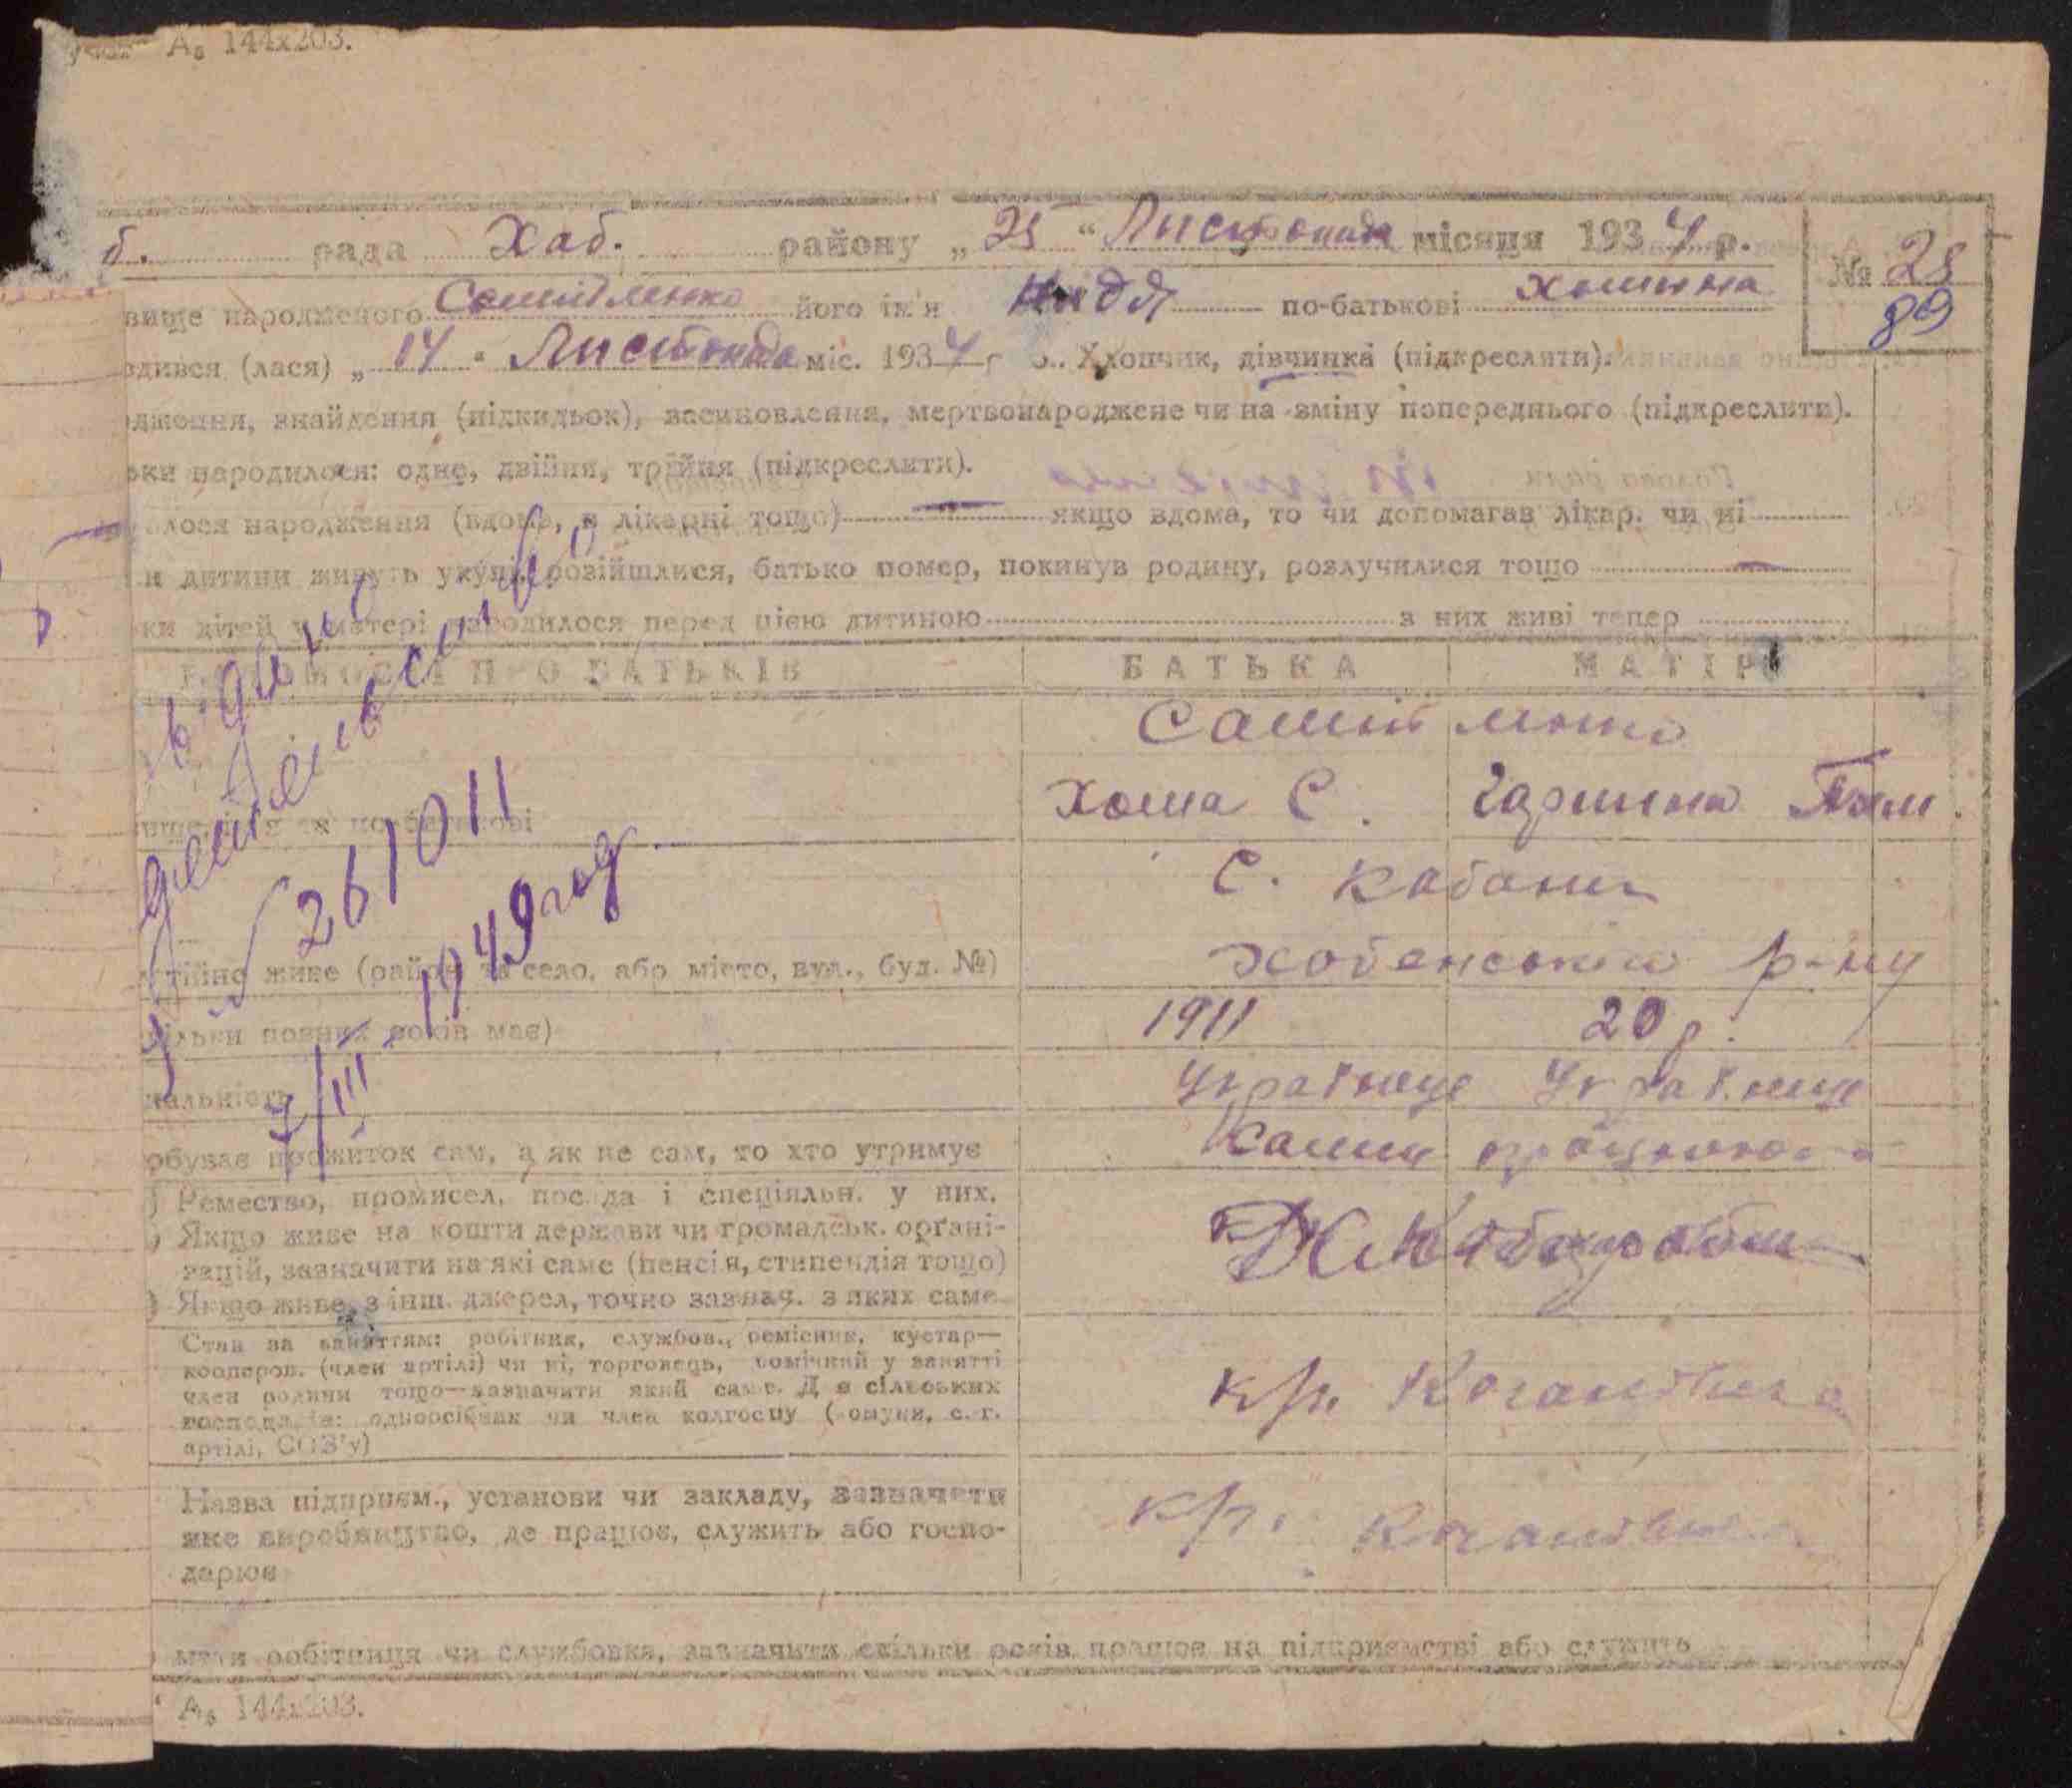 А₅ 144х203.
б. рада Хаб. району „25“ Листопада місяця 1934 р. № 28
89
вище народженого Самійленко його ім'я Надя по-батькові Хомівна
одився (лася) „14“ Листопада міс. 1934 р Хлопчик, дівчинка (підкреслити).
дження, знайдення (підкидьок), засиновлення, мертвонароджене чи на зміну попереднього (підкреслити).
ки народилося: одне, двійня, трійня (підкреслити).
лося народження (вдома, в лікарні тощо) — якщо вдома, то чи допомагав лікар. чи ні
и дитини живуть укупі, розійшлися, батько помер, покинув родину, розлучилися тощо —
ки дітей у матері народилося перед цією дитиною з них живі тепер
ВІДОМОСТІ ПРО БАТЬКІВ БАТЬКА МАТІРІ
Самійленко
ім'я та по-батькові Хома С.
С. Кабани
тійно живе (район та село, або місто, вул., буд. №) Хабенського р-ну
ільки повних років має) 1911 20 р.
нальність Українце Українце
обуває прожиток сам, а як не сам, то хто утримує Сами
) Ремество, промисел, посада і спеціяльн. у них.
) Якщо живе на кошти держави чи громадськ. органі-
зацій, зазначити на які саме (пенсія, стипендія тощо)
) Якщо живе з інш. джерел, точно зазнач. з яких саме
Стан за заняттям: робітник, службов., ремісник, кустар—
кооперов. (член артілі) чи ні, торговець, помічний у занятті
член родини тощо—зазначити який саме. Для сільських
господарів: одноосібник чи член колгоспу (комуни, с.-г.
артілі, СОЗ'у)
кр.
Назва підприєм., установи чи закладу, зазначити
яке виробництво, де працює, служить або госпо-
дарює
кр.
мати робітниця чи службовка, зазначити скільки років працює на підприємстві або служить
А₅ 144х203.
261011
7/III 1949 год